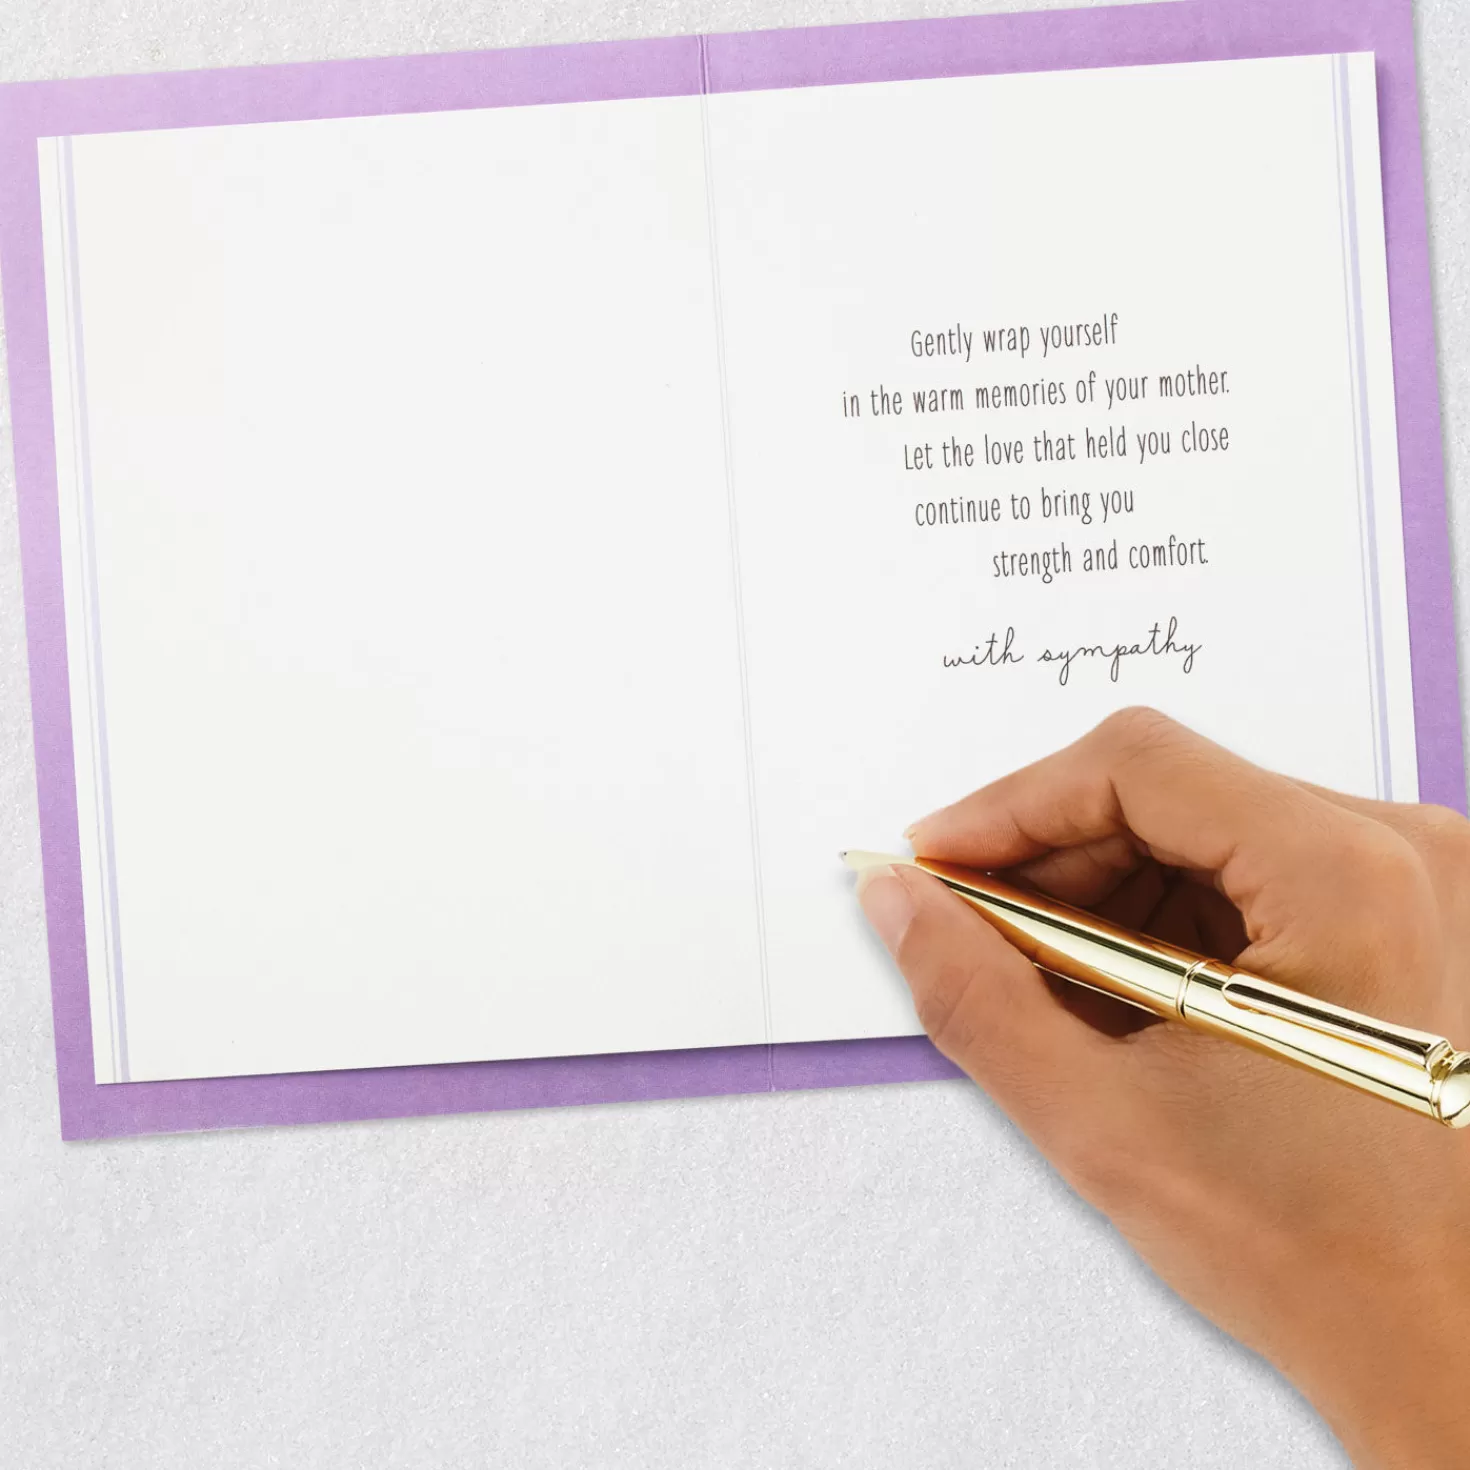 Gently wrap yourself
in the warm memories of your mother.
Let the love that held you close
continue to bring you
strength and comfort.
with sympathy